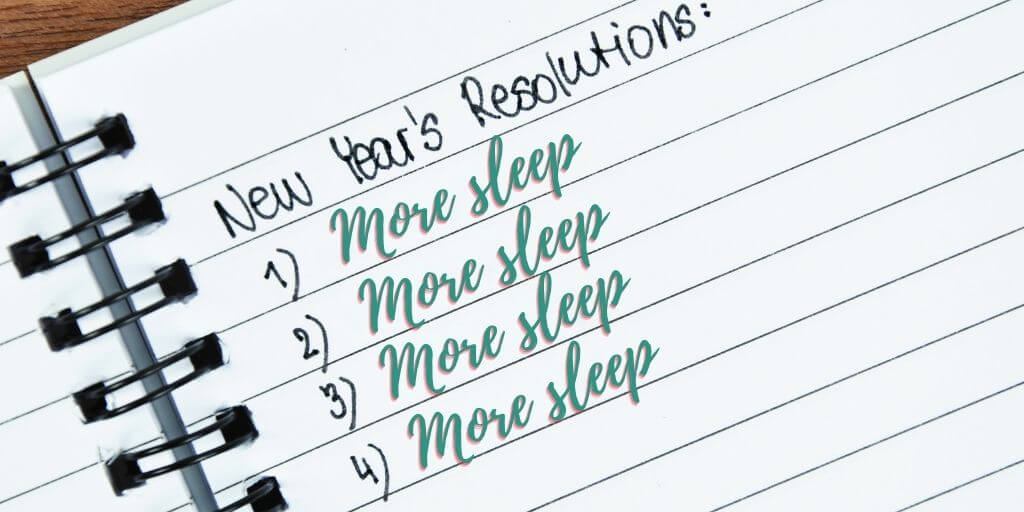 New Year's Resolutions:
1) More sleep
2) More sleep
3) More sleep
4) More sleep